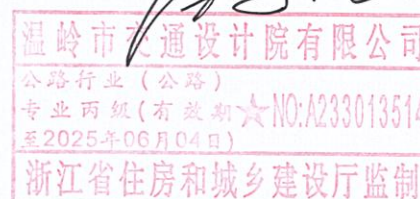 温岭市交通设计院有限公司
公路行业（公路）
专业丙级(有效期 NO:A233013514
至2025年06月04日)
浙江省住房和城乡建设厅监制